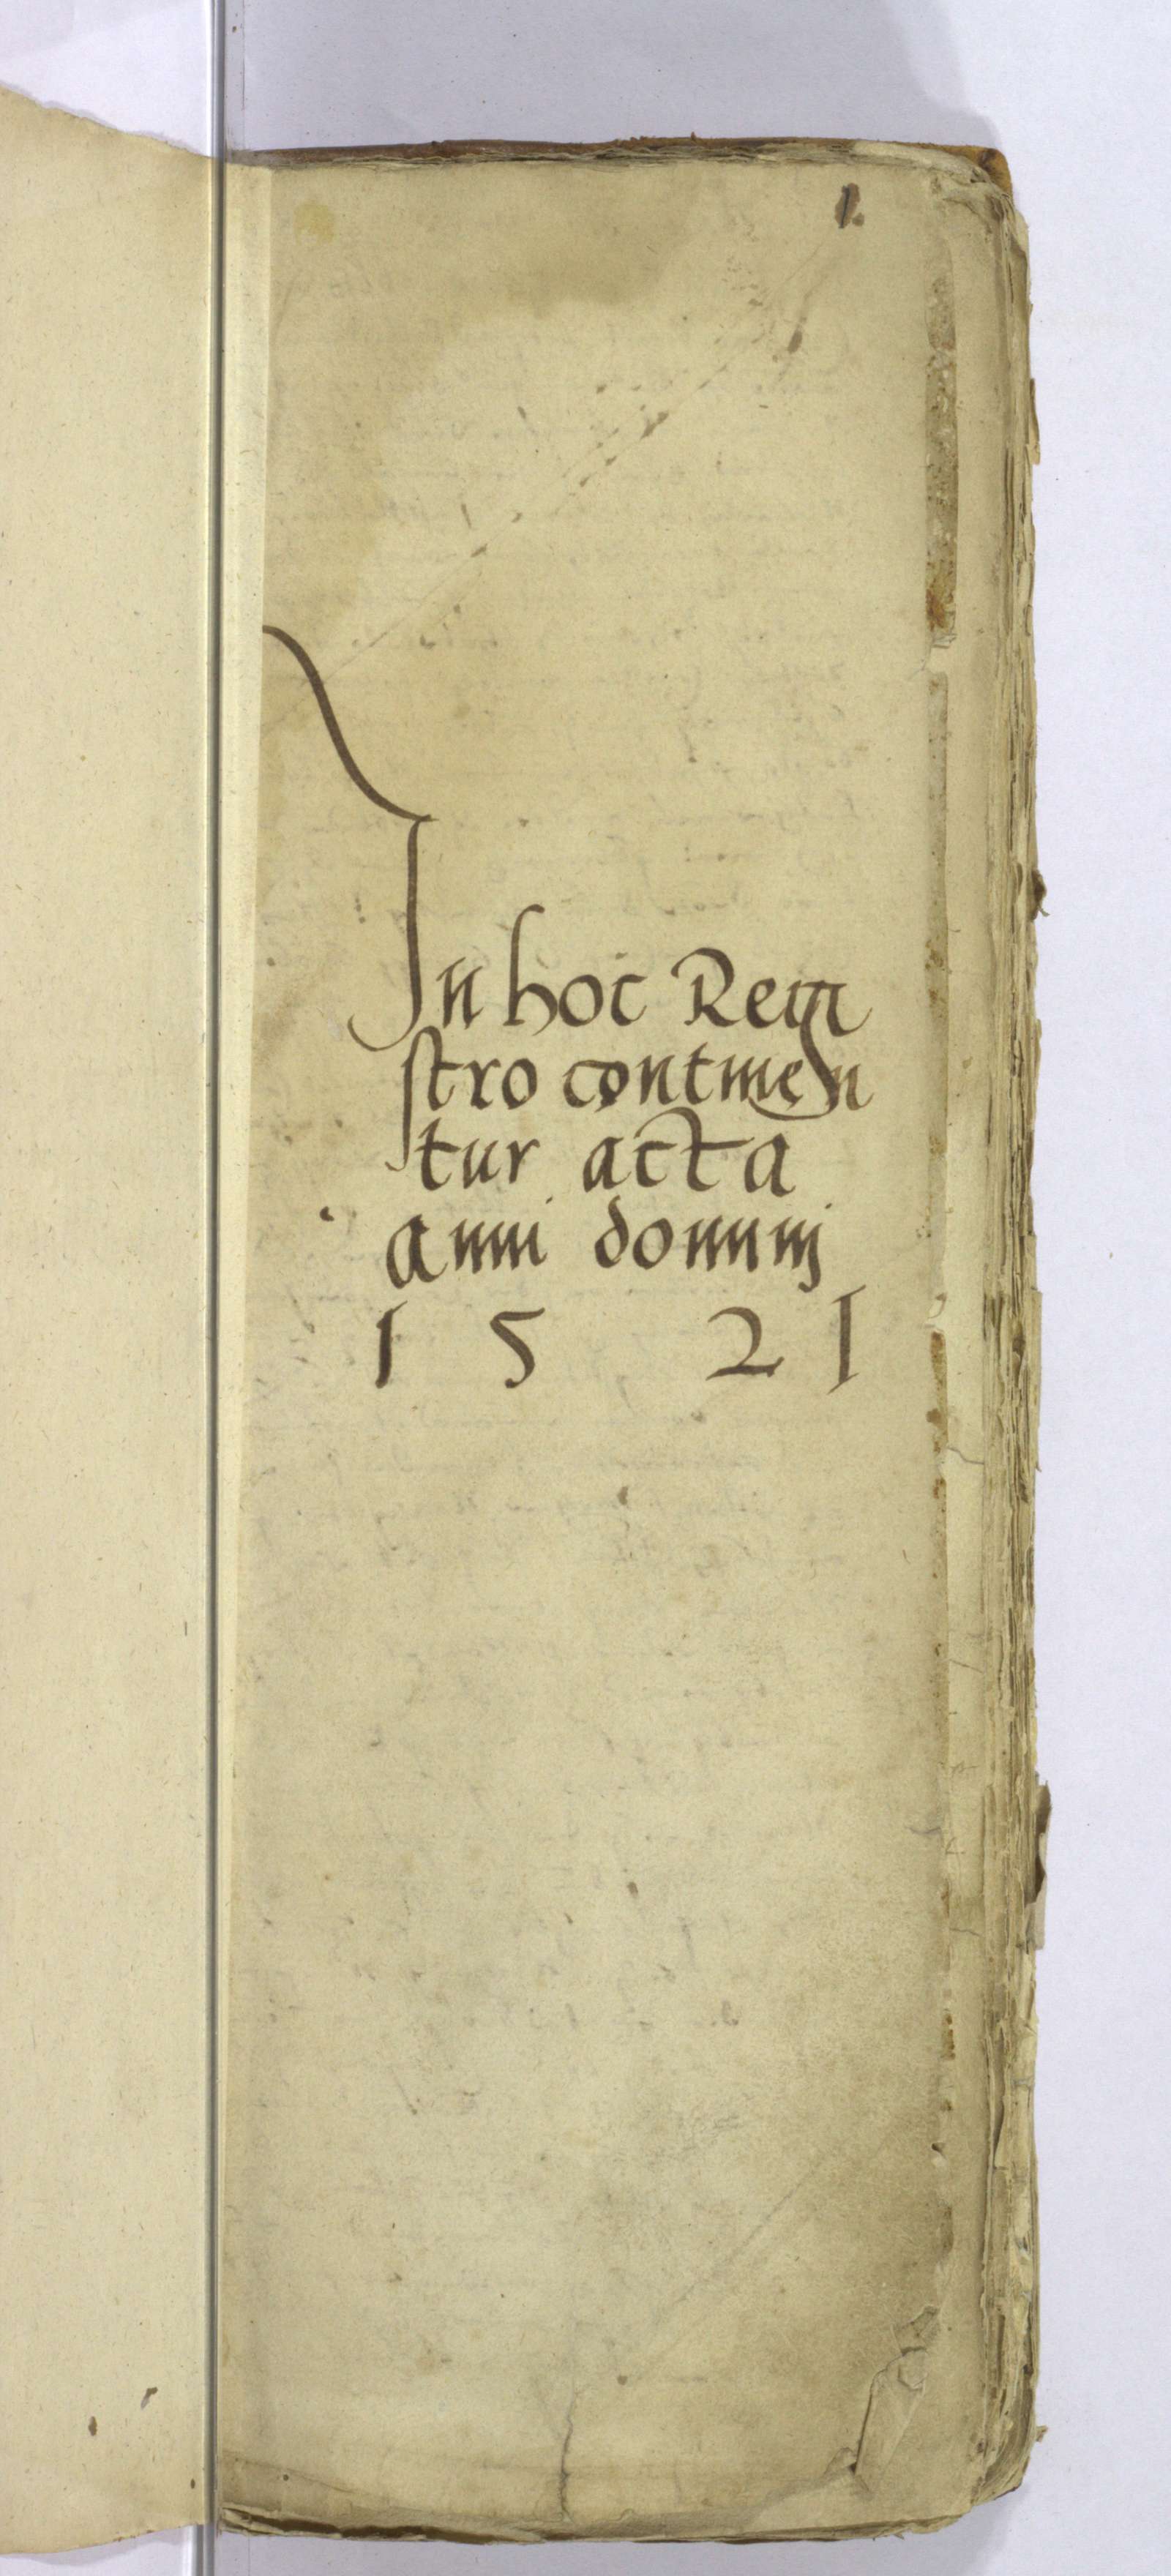 1.
In hoc Regi
stro continen
tur acta
anni dominj
1 5 2 1